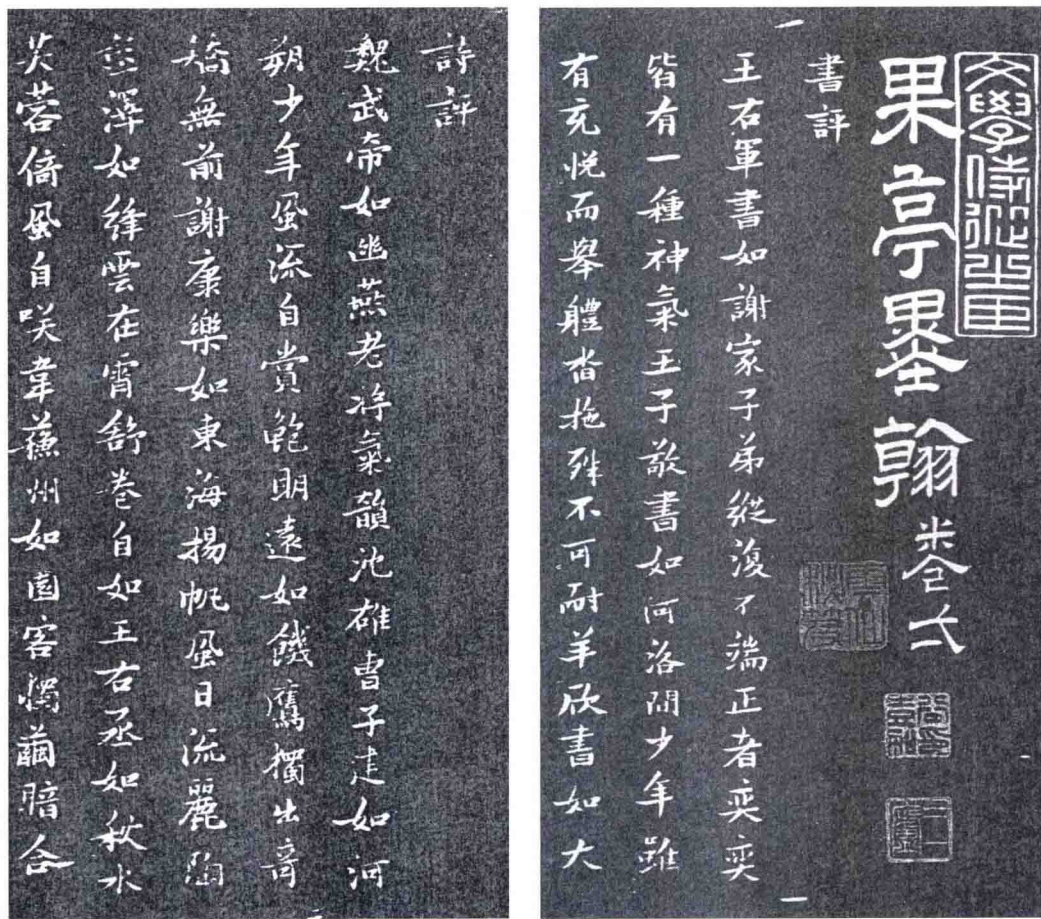 文學侍從之臣
果亭墨翰卷弌
書評
王右軍書如謝家子弟縱復不端正者奕奕
皆有一種神氣王子敬書如河洛間少年雖
有充悅而舉體沓拖殊不可耐羊欣書如大
詩評
魏武帝如幽燕老將氣韻沈雄曹子建如河
朔少年風流自賞鮑明遠如饑鷹獨出奇
矯無前謝康樂如東海揚帆風日流麗陶
彭澤如絳雲在霄舒卷自如王右丞如秋水
芙蓉倚風自咲韋蘇州如園客獨繭暗合